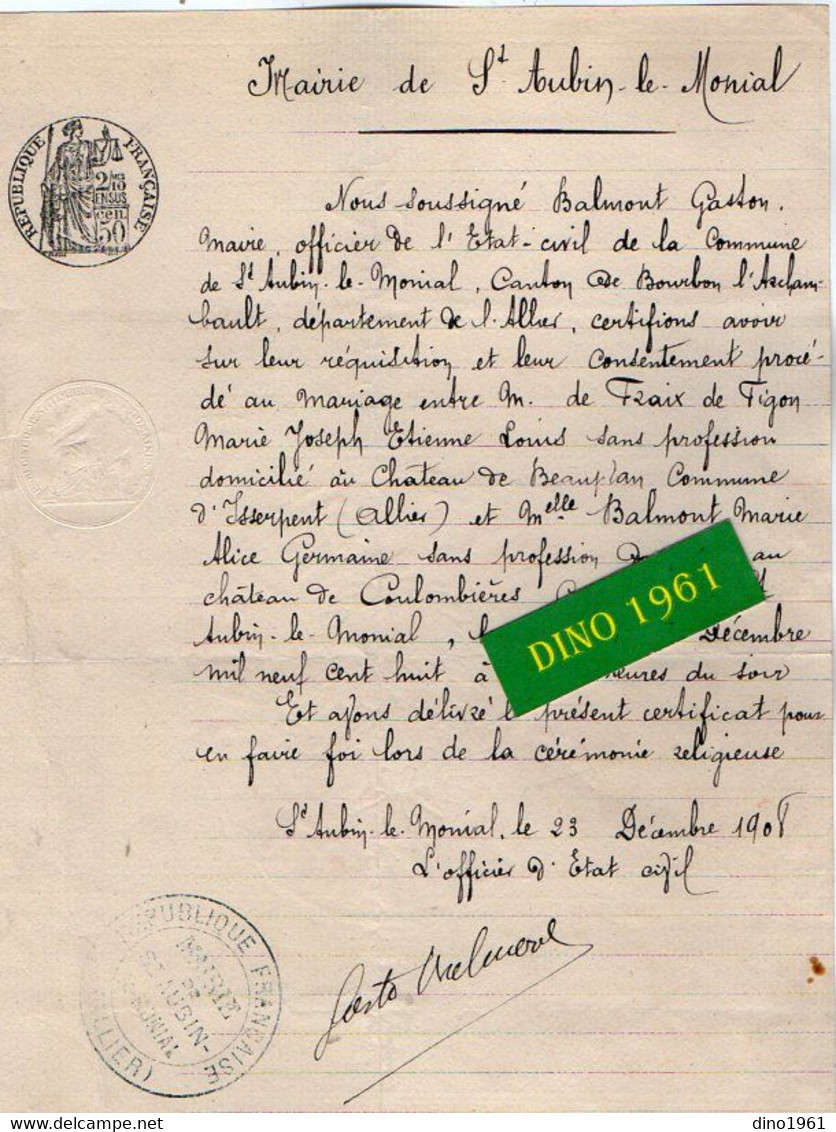 Mairie de St Aubin-le-Monial
RÉPUBLIQUE FRANÇAISE
2/10
EN SUS
50
Nous soussigné Balmont Gaston,
Maire, officier de l'Etat-civil de la Commune
de St Aubin-le-Monial, Canton de Bourbon l'Archam-
bault, département de l'Allier, certifions avoir
sur leur réquisition et leur consentement procé-
dé au Mariage entre M. de Fraix de Figon
Marie Joseph Etienne Louis sans profession
domicilié au Château de Beauplan Commune
d'Isserpent (Allier) et Melle Balmont Marie
Alice Germaine sans profession au
château de Coulombières
Aubin-le-Monial, Décembre
mil neuf cent huit à heures du soir
DINO 1961
Et ayons délivré le présent certificat pour
en faire foi lors de la cérémonie religieuse
St Aubin-le-Monial, le 23 Décembre 1908
L'officier d'Etat civil
RÉPUBLIQUE FRANÇAISE
MAIRIE
DE
ST AUBIN-
LE-MONIAL
(ALLIER)
dino1961